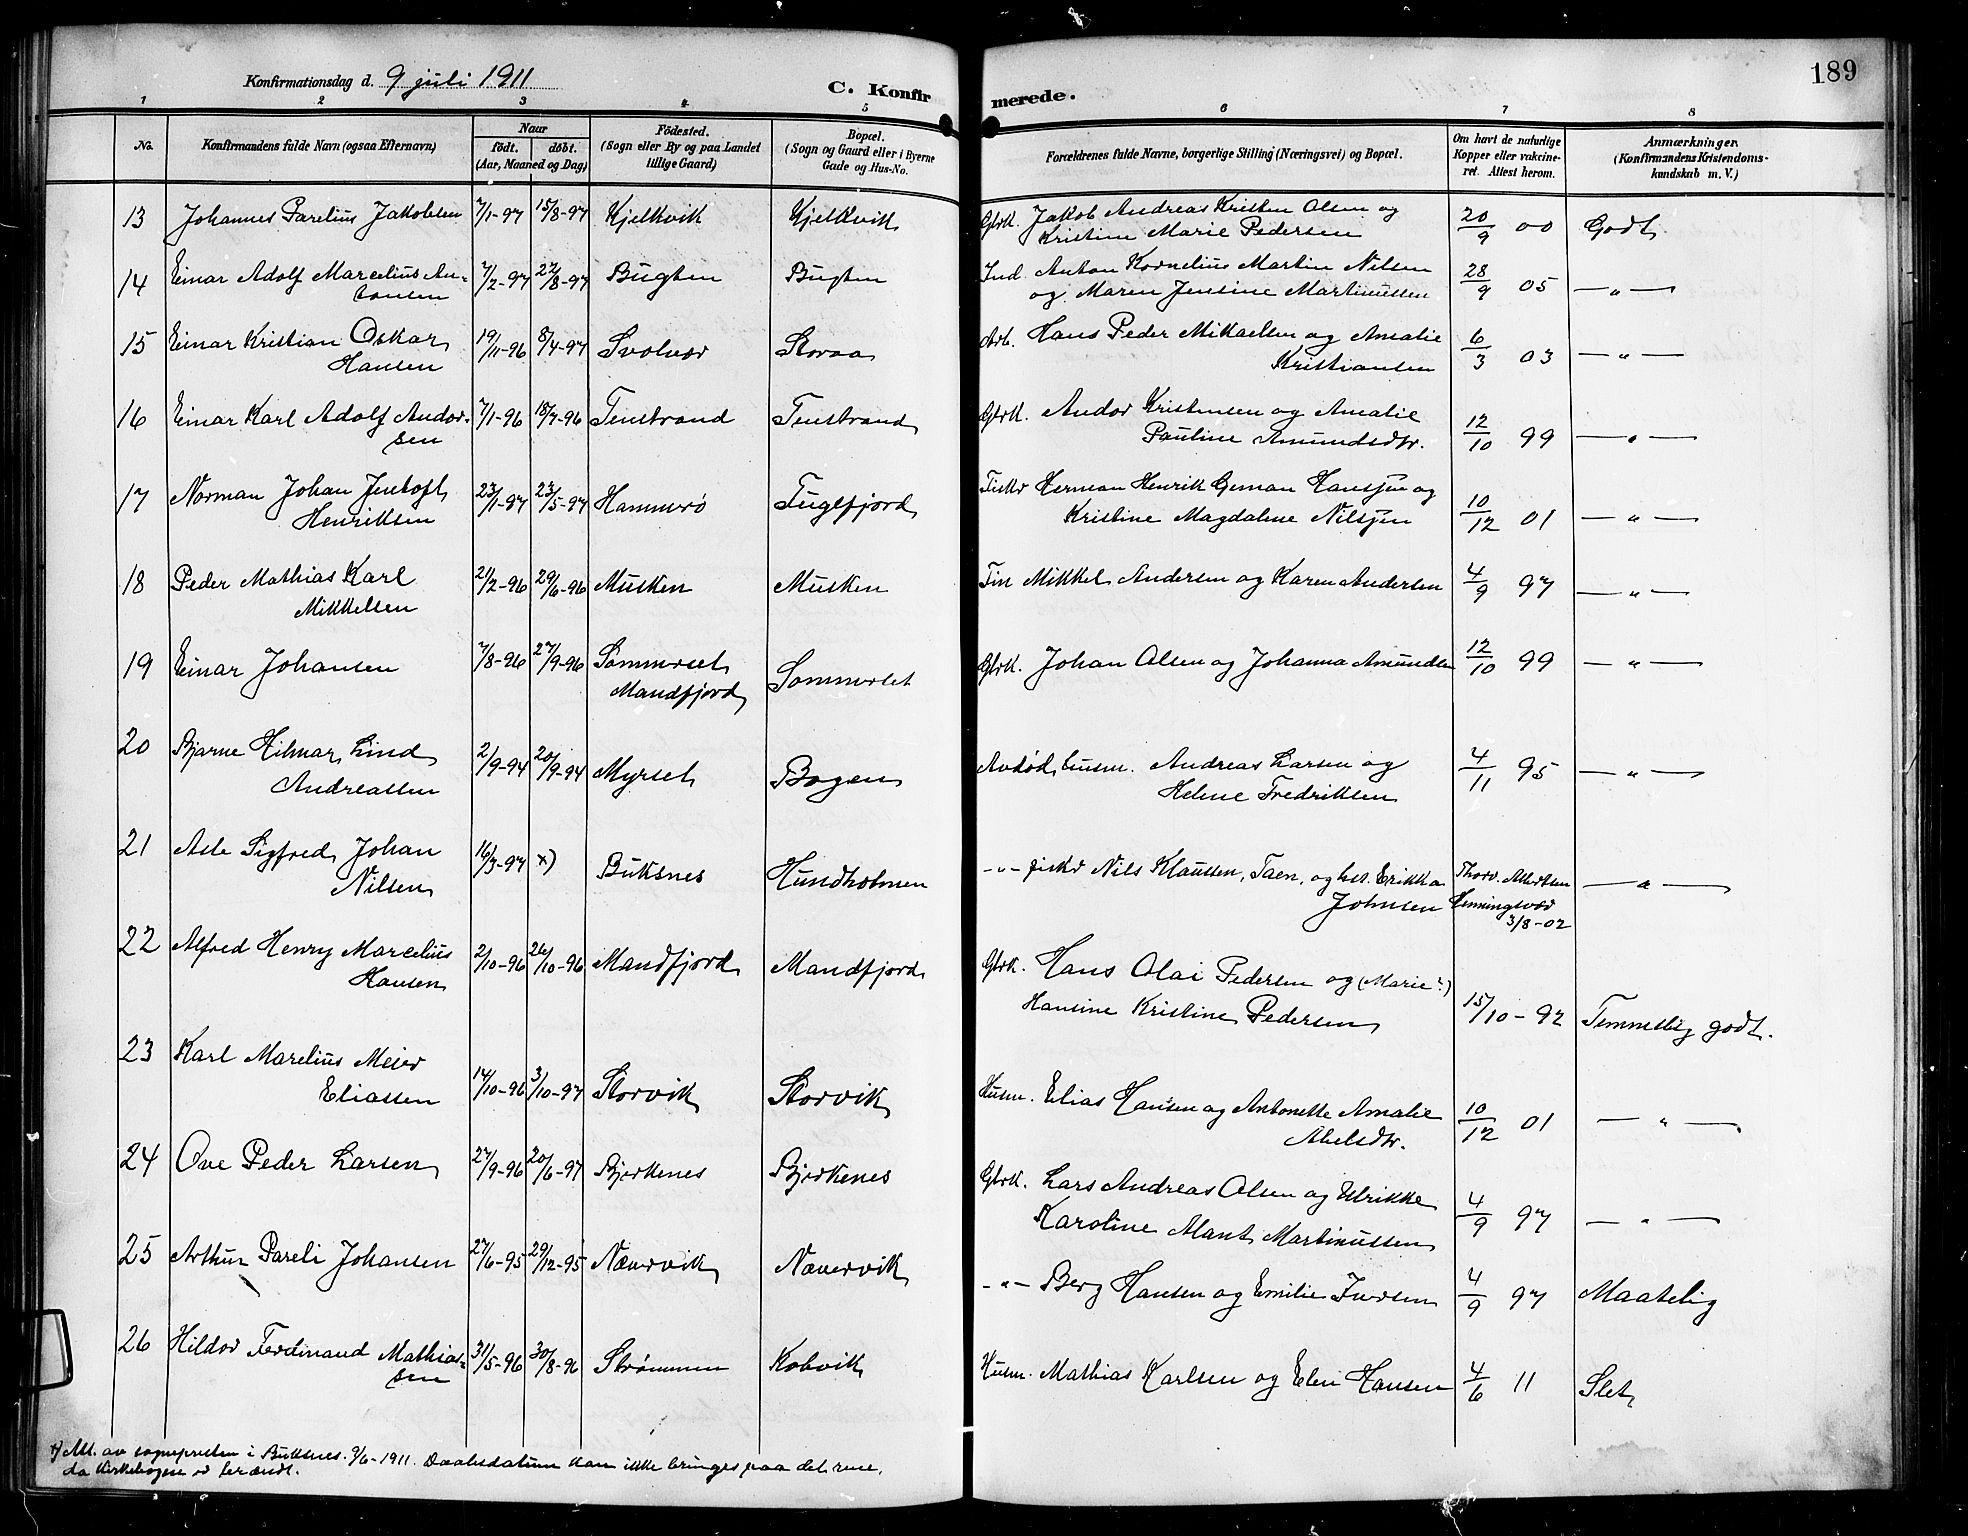 189
Konfirmationsdag d. 9 juli 1911
C. Konfirmerede.
1 2 3 4 5 6 7 8
No. Konfirmandens fulde Navn (ogsaa Efternavn) Naar født. døbt. (Aar, Maaned og Dag) Födested. (Sogn eller By og paa Landet tillige Gaard) Bopæl. (Sogn og Gaard eller i Byerne Gade og Hus-No. Forældrenes fulde Navne, borgerlige Stilling (Næringsvei) og Bopæl. Om havt de naturlige Kopper eller vakcineret. Attest herom. Anmærkninger. (Konfirmandens Kristendomskundskab m. V.)
13 Johannes Parelius Jakobsen 7/1-97 15/8-97 Kjelkvik Kjelkvik Gbrk. Jakob Andreas Kristen Olsen og
Kristine Marie Pedersen 20/9 00 Godt
14 Einar Adolf Marcelius An-
tonsen 7/2-97 22/8-97 Bugten Bugten Ind. Anton Kornelius Martin Nilsen
og Maren Jensine Martinussen 28/9 05 —"—
15 Einar Kristian Oskar
Hansen 19/11-96 8/4-97 Svolvær Storaa Arb. Hans Peder Mikaelsen og Amalie
Kristiansen 6/3 03 —"—
16 Einar Karl Adolf Andor-
sen 7/1-96 18/7-96 Tenstrand Tenstrand Gbrk. Andor Kristensen og Amalie
Pauline Amundsdtr. 12/10 99 —"—
17 Norman Johan Jentoft
Henriksen 23/1-97 23/5-97 Hammerø Fuglfjord Fiskr Herman Henrik Geman Hansen og
Kristine Magdalene Nilsen 10/12 01 —"—
18 Peder Mathias Karl
Mikkelsen 21/2-96 29/6-96 Musken Musken Fin Mikkel Andersen og Karen Andersen 4/9 97 —"—
19 Einar Johansen 7/8-96 27/9-96 Sommerset
Mandfjord Sommerset Gbrk. Johan Olsen og Johanna Amundsen 12/10 99 —"—
20 Bjarne Hilmar Lind
Andreassen 2/9-94 20/9-94 Myrset Bogen Avdød husm. Andreas Larsen og
Helene Fredriksen 4/11 95 —"—
21 Asle Sigfred Johan
Nilsen 16/3-97 x) Buksnes Hundholmen -"- fiskr Nils Klaussen, Taen, og hst. Erikka
Johnsen Thorv. Albertsen
Henningsvær
3/8-02 —"—
22 Alfred Henry Marcelius
Hansen 2/10-96 26/10-96 Mandfjord Mandfjord Gbrk. Hans Olai Pedersen og (Marie?)
Hansine Kristine Pedersen 15/10-92 Temmelig godt.
23 Karl Marelius Meier
Eliassen 14/10-96 3/10-97 Storvik Storvik Husm. Elias Hansen og Antonette Amalie
Abelsdtr. 10/12 01 —"—
24 Ove Peder Larsen 27/9-96 20/6-97 Bjerkenes Bjerkenes Gbrk. Lars Andreas Olsen og Ulrikke
Karoline Martinussen 4/9 97 —"—
25 Arthur Pareli Johansen 27/6-95 29/12-95 Næuervik Næuervik -"- Berg Hansen og Emilie Iversen 4/9 97 Maatelig
26 Hildor Ferdinand Mathias-
sen 31/5-96 30/8-96 Strømmen Kobvik Husm. Mathias Karlsen og Elen Hansen 4/6 11 Slet
x) Att. av sognepresten i Buksnes. 9/6-1911. Daabsdatum kan ikke bringes paa det rene,
da Kirkebogene er brændt.